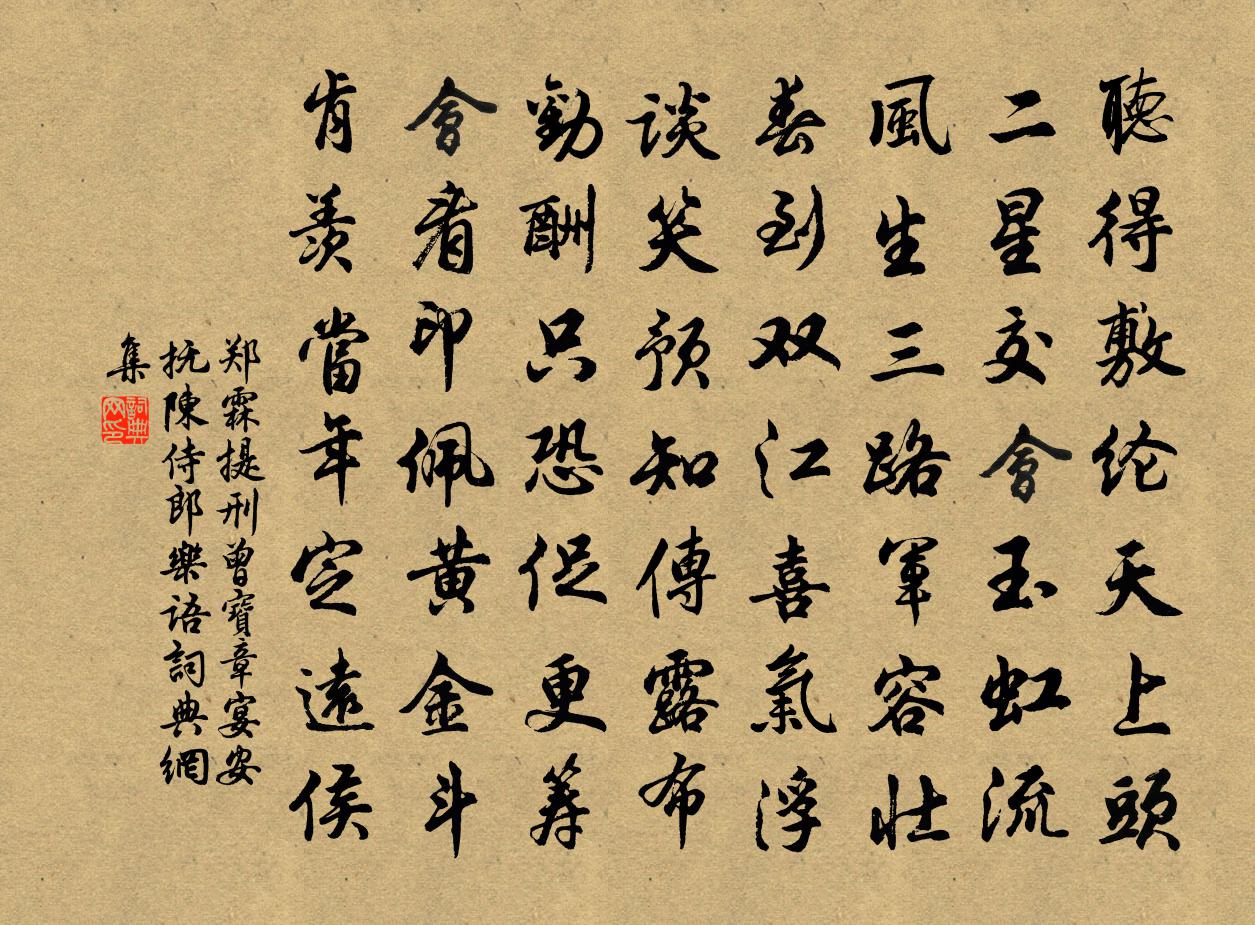 聽得敷纶天上頭
二星交會玉虹流
風生三路軍容壮
春到双江喜氣浮
談笑預知傳露布
勸酬只恐促更筹
會看印佩黄金斗
肯羨當年定遠侯
郑霖提刑曾寶章宴安
抚陳侍郎樂語詞典網
集
詞典网印